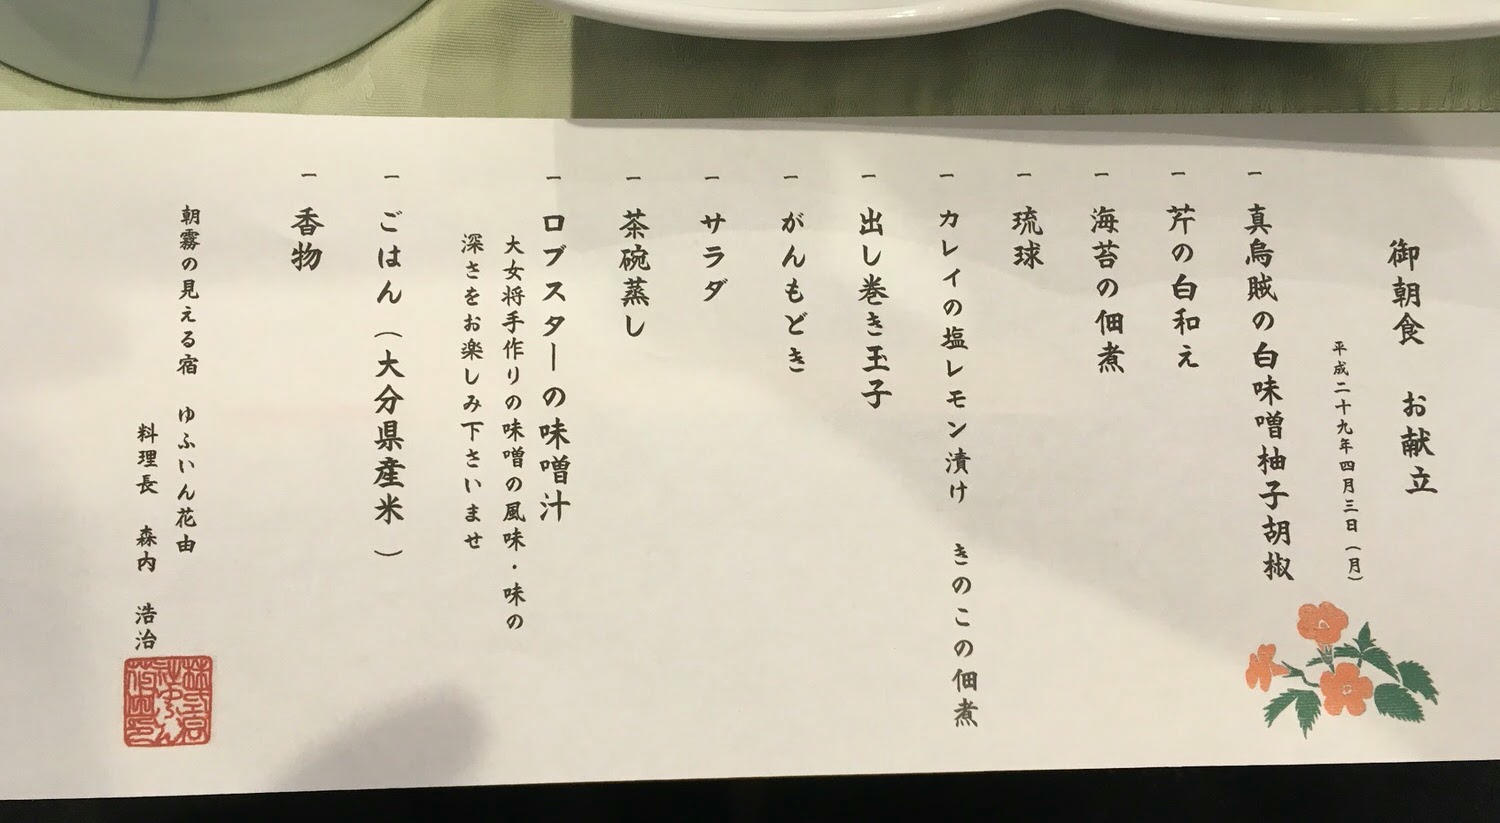 御朝食　お献立
平成二十九年四月三日（月）
一 真烏賊の白味噌柚子胡椒
一 芹の白和え
一 海苔の佃煮
一 琉球
一 カレイの塩レモン漬け　きのこの佃煮
一 出し巻き玉子
一 がんもどき
一 サラダ
一 茶碗蒸し
一 ロブスターの味噌汁
大女将手作りの味噌の風味・味の
深さをお楽しみ下さいませ
一 ごはん（大分県産米）
一 香物
朝霧の見える宿　ゆふいん花由
料理長　森内　浩治